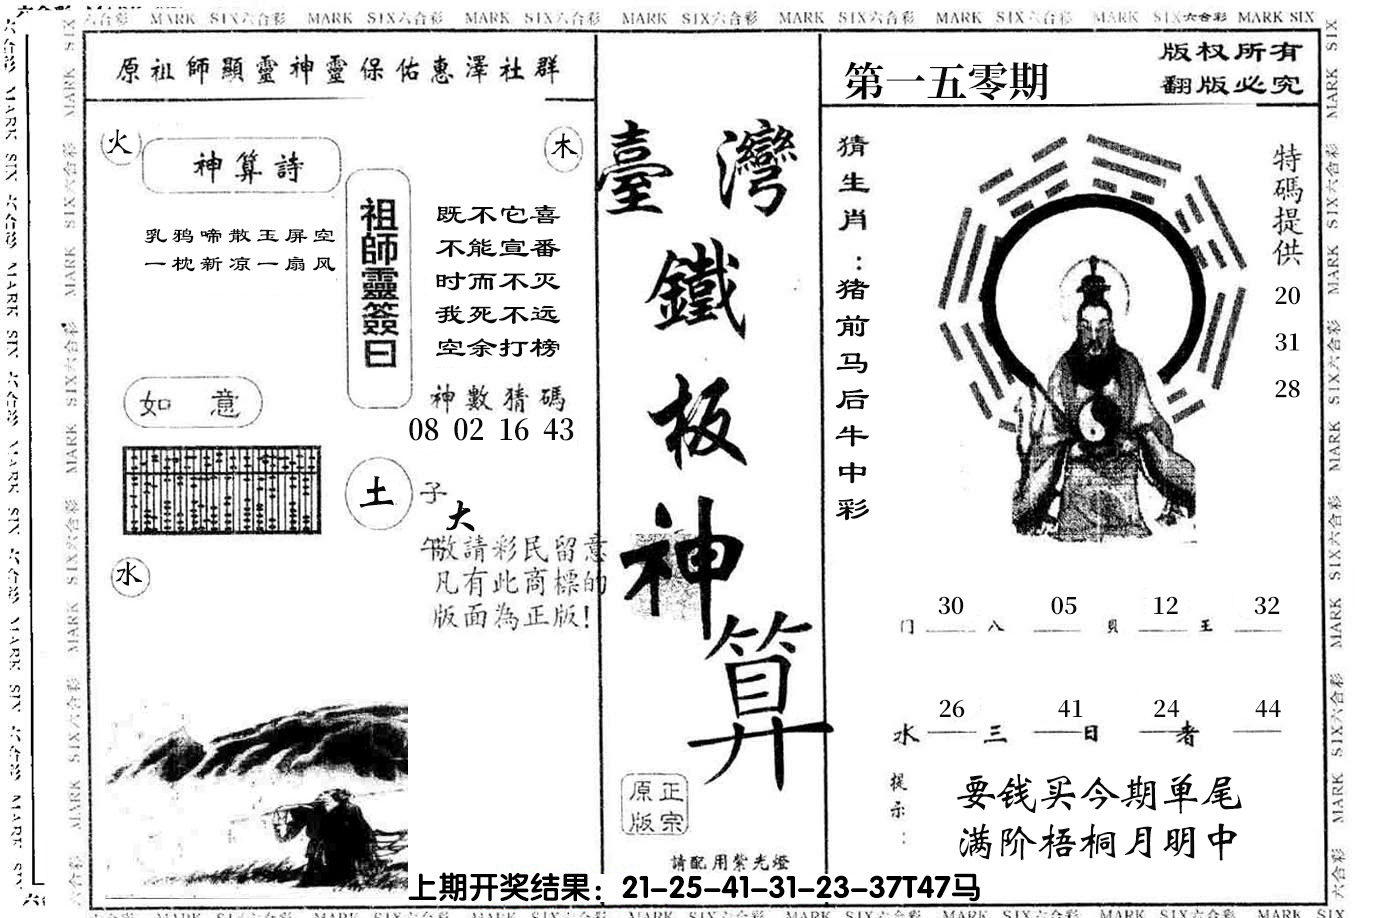 原祖師顯靈神靈保佑惠澤社群
火
神算詩
木
乳鸦啼散玉屏空
一枕新凉一扇风
祖師靈簽曰
既不它喜
不能宣番
时而不灭
我死不远
空余打榜
如意
神數猜碼
08 02 16 43
土
子
大
午
敬請彩民留意
凡有此商標的
版面為正版!
水
臺灣
鐵
板
神
算
正宗
原版
請配用紫光燈
第一五零期
版权所有
翻版必究
猜生肖：猪前马后牛中彩
特碼提供
20
31
28
30 05 12 32
门 八 贝 王
26 41 24 44
水 三 日 者
提示：
要钱买今期单尾
满阶梧桐月明中
上期开奖结果：21-25-41-31-23-37T47马
MARK SIX六合彩